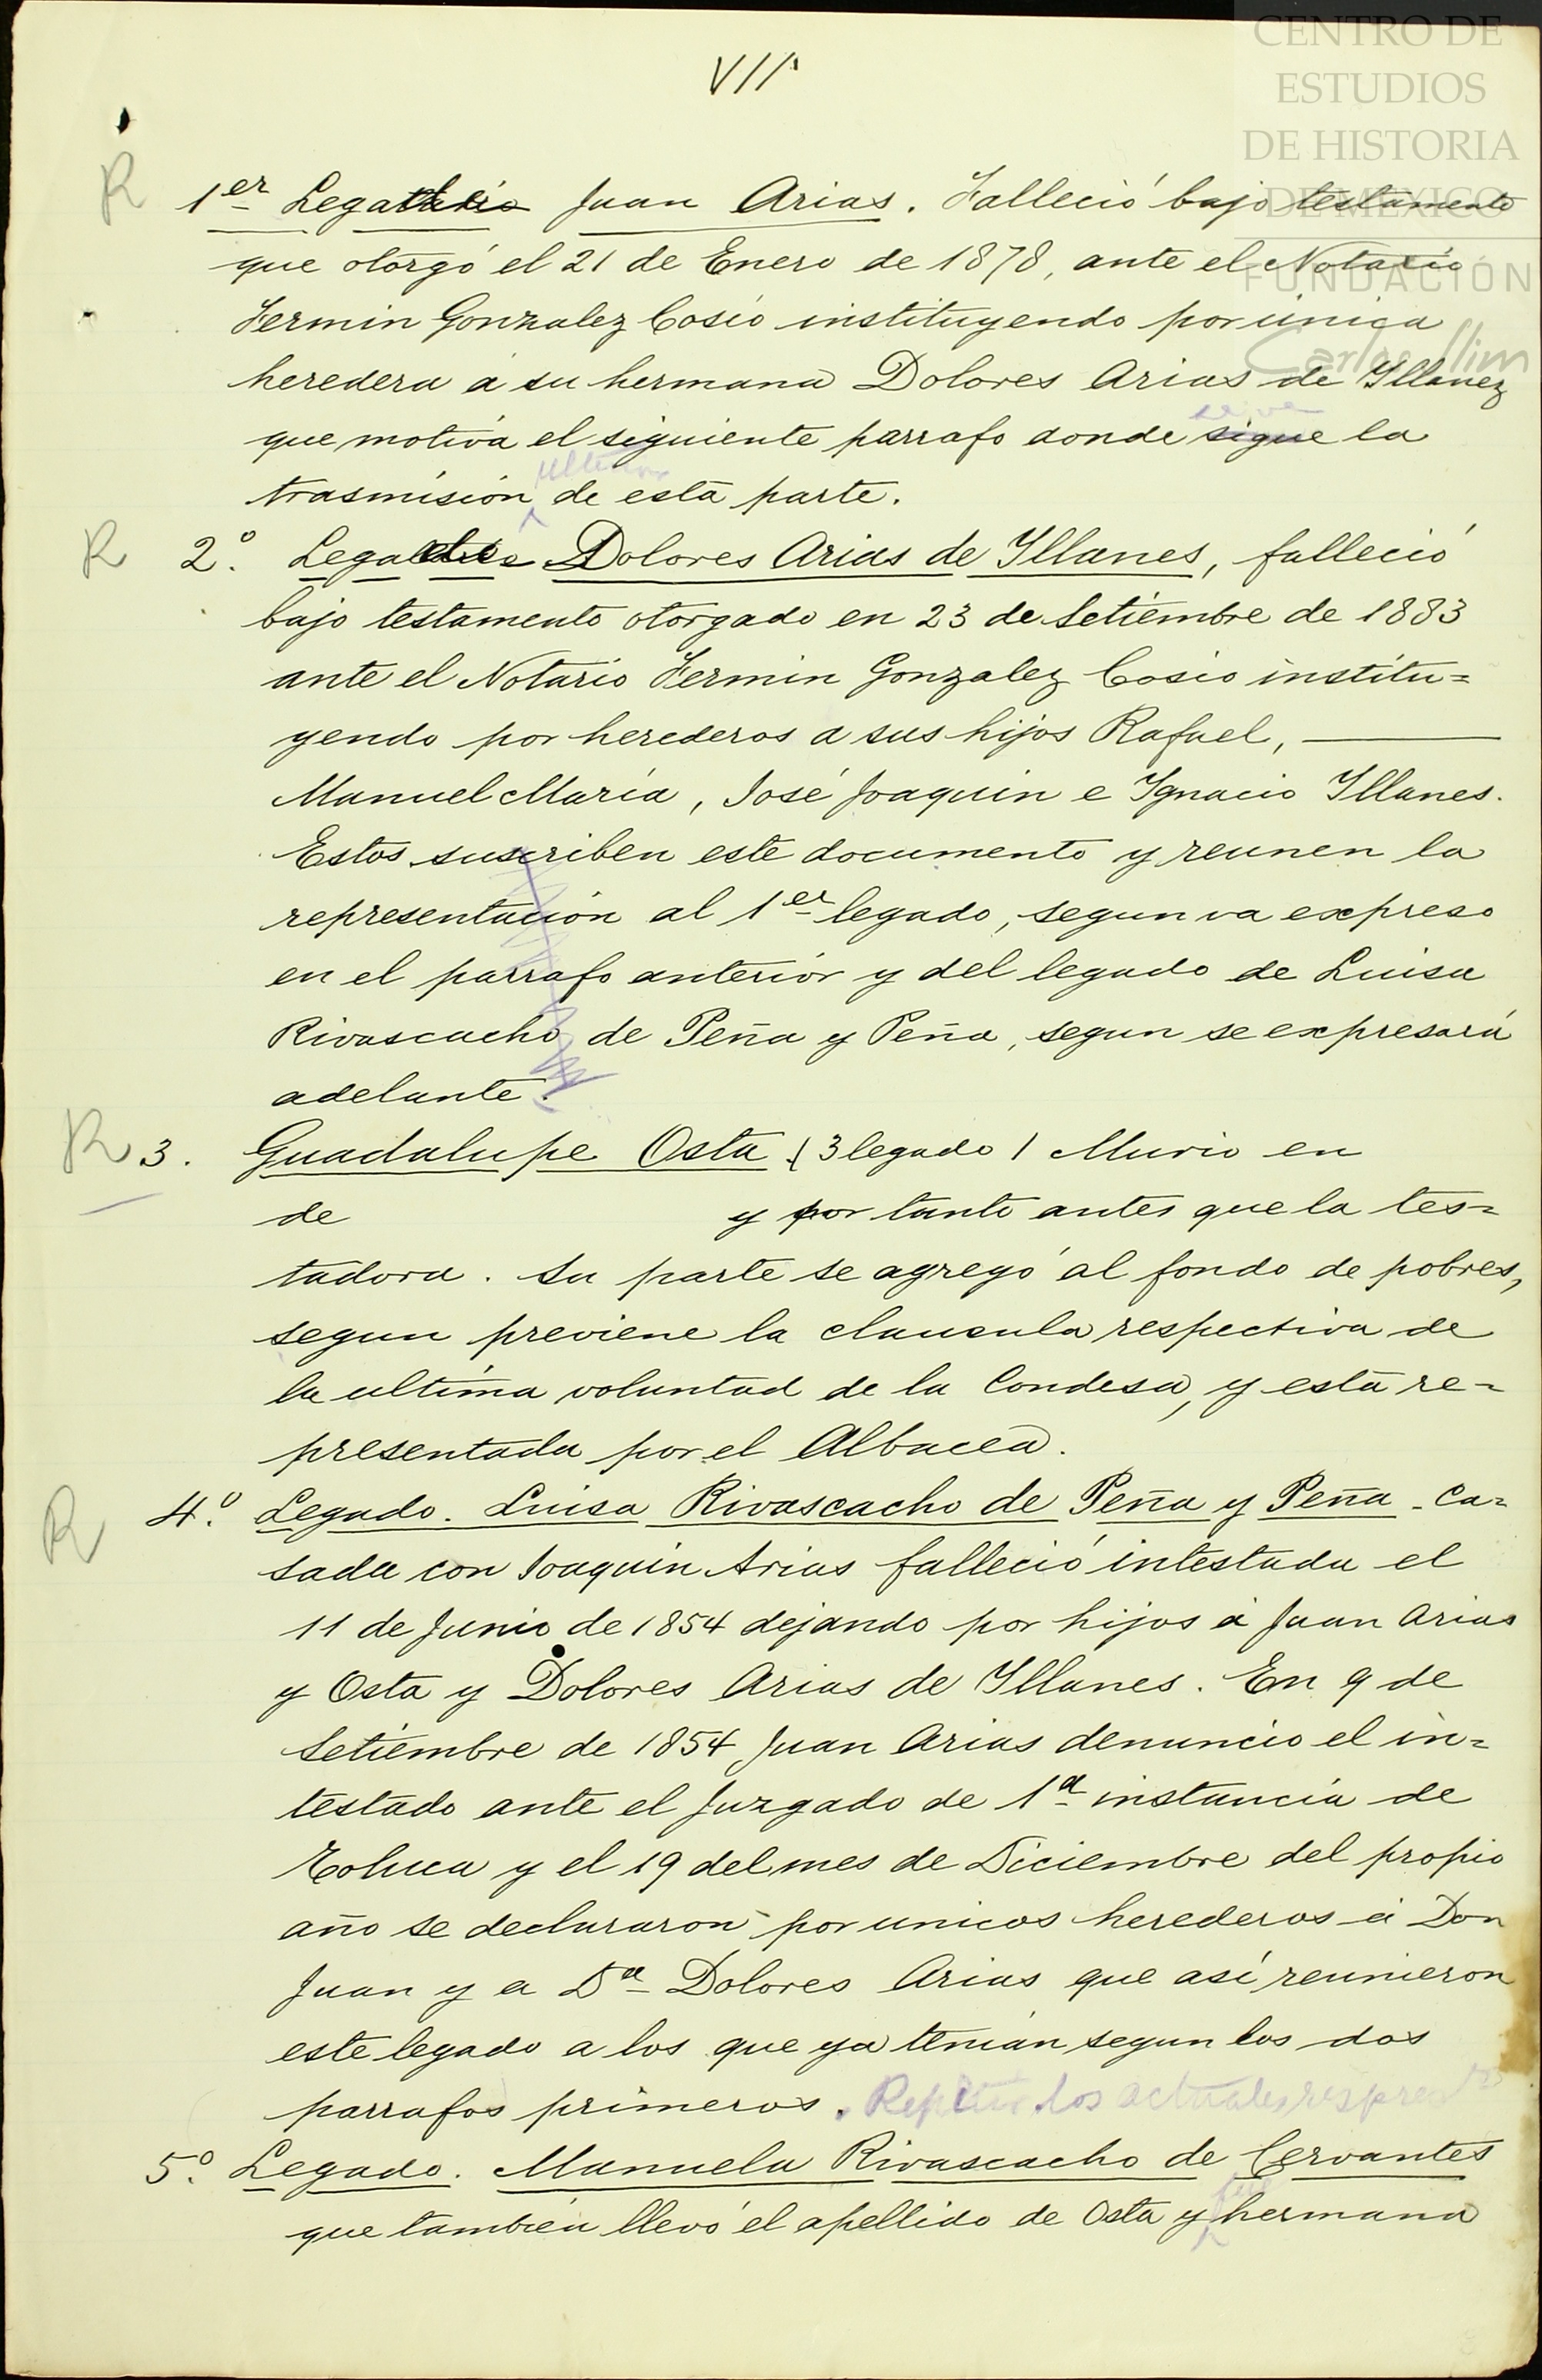 CENTRO DE
ESTUDIOS
DE HISTORIA
DE MÉXICO
FUNDACIÓN
Carlos Slim
VII
R 1er Legatario Juan Arias. Falleció bajo testamento
que otorgó el 21 de Enero de 1878, ante el Notario
Fermin Gonzalez Cosio instituyendo por única
heredera á su hermana Dolores Arias de Yllanez
que motiva el siguiente parrafo donde sigue la
se ve
trasmisión de esta parte.
ulterior
R 2.º Dolores Arias de Yllanes, falleció
bajo testamento otorgado en 23 de Setiembre de 1883
ante el Notario Fermin Gonzalez Cosio institu=
yendo por herederos a sus hijos Rafael,
Manuel María, José Joaquin e Ygnacio Yllanes.
Estos suscriben este documento y reunen la
representación al 1er legado, segun va expreso
en el parrafo anterior y del legado de Luisa
Rivascacho de Peña y Peña, segun se expresará
adelante.
R 3. Guadalupe Osta (3 legado) Murio en
de y por tanto antes que la tes=
tadora. Su parte se agregó al fondo de pobres,
segun previene la clausula respectiva de
la ultima voluntad de la Condesa, y está re=
presentada por el Albacea.
R 4.º Legado. Luisa Rivascacho de Peña y Peña - Ca=
sada con Joaquin Arias falleció intestada el
11 de Junio de 1854 dejando por hijos á Juan Arias
y Osta y Dolores Arias de Yllanes. En 9 de
Setiembre de 1854 Juan Arias denuncio el in=
testado ante el Juzgado de 1a instancia de
Toluca y el 19 del mes de Diciembre del propio
año se declararon por unicos herederos á Don
Juan y a Da Dolores Arias que así reunieron
este legado a los que ya tenian segun los dos
parrafos primeros. los actuales
5.º Legado. Manuela Rivascacho de Cervantes
que tambien llevó el apellido de Osta y hermana
fué